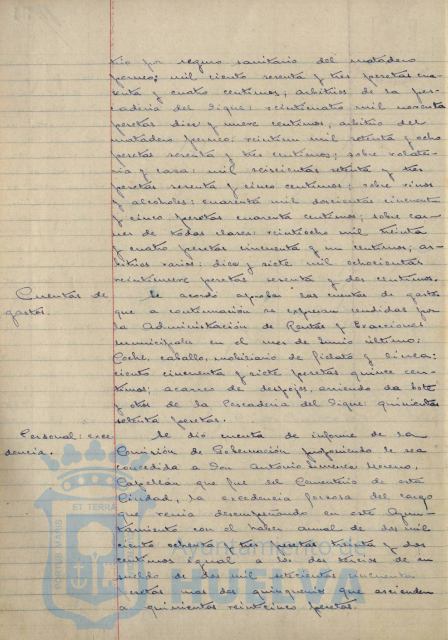 trio por seguro sanitario del matadero
porcino: mil ciento sesenta y tres pesetas cua-
renta y cuatro centimos; arbitrios de la pes-
caderia del Dique: veinticuatro mil noventa
pesetas diez y nueve centimos; arbitrio del
matadero porcino: veintiun mil setenta y ocho
pesetas sesenta y tres centimos; sobre volate-
ria y caza: mil seiscientas setenta y tres
pesetas sesenta y cinco centimos; sobre vinos
y alcoholes: cuarenta mil doscientas cincuenta
y cinco pesetas cuarenta centimos; sobre car-
nes de todas clases: veintiocho mil treinta
y cuatro pesetas cincuenta y un centimos; ar-
bitrios varios: diez y siete mil ochocientas
veintinueve pesetas sesenta y dos centimos.
Cuentas de gastos.
Se acordó aprobar las cuentas de gastos
que a continuación se expresan rendidas por
la Administración de Rentas y Exacciones
municipales en el mes de Junio ultimo:
Coche, caballo, mobiliario de fielato y linea:
ciento cincuenta y siete pesetas quince cen-
timos; acarreo de despojos, arriendo de bote
y otros de la Pescaderia del Dique: quinientas
setenta pesetas.
Personal: exce-
dencia.
Se dio cuenta de informe de la
Comisión de Gobernación proponiendo le sea
concedida a Don Antonio Jimenez Moreno,
Capellán que fue del Cementerio de esta
Ciudad, la excedencia forzosa del cargo
que venia desempeñando en este Ayun-
tamiento con el haber anual de dos mil
ciento ochenta y tres pesetas treinta y dos
centimos igual a los dos tercios de su
sueldo de dos mil setecientas cincuenta
pesetas mas dos quinquenios que ascienden
a quinientas veinticinco pesetas.
ET TERRAE
PORTUS MARIS
Ayuntamiento de
HUELVA